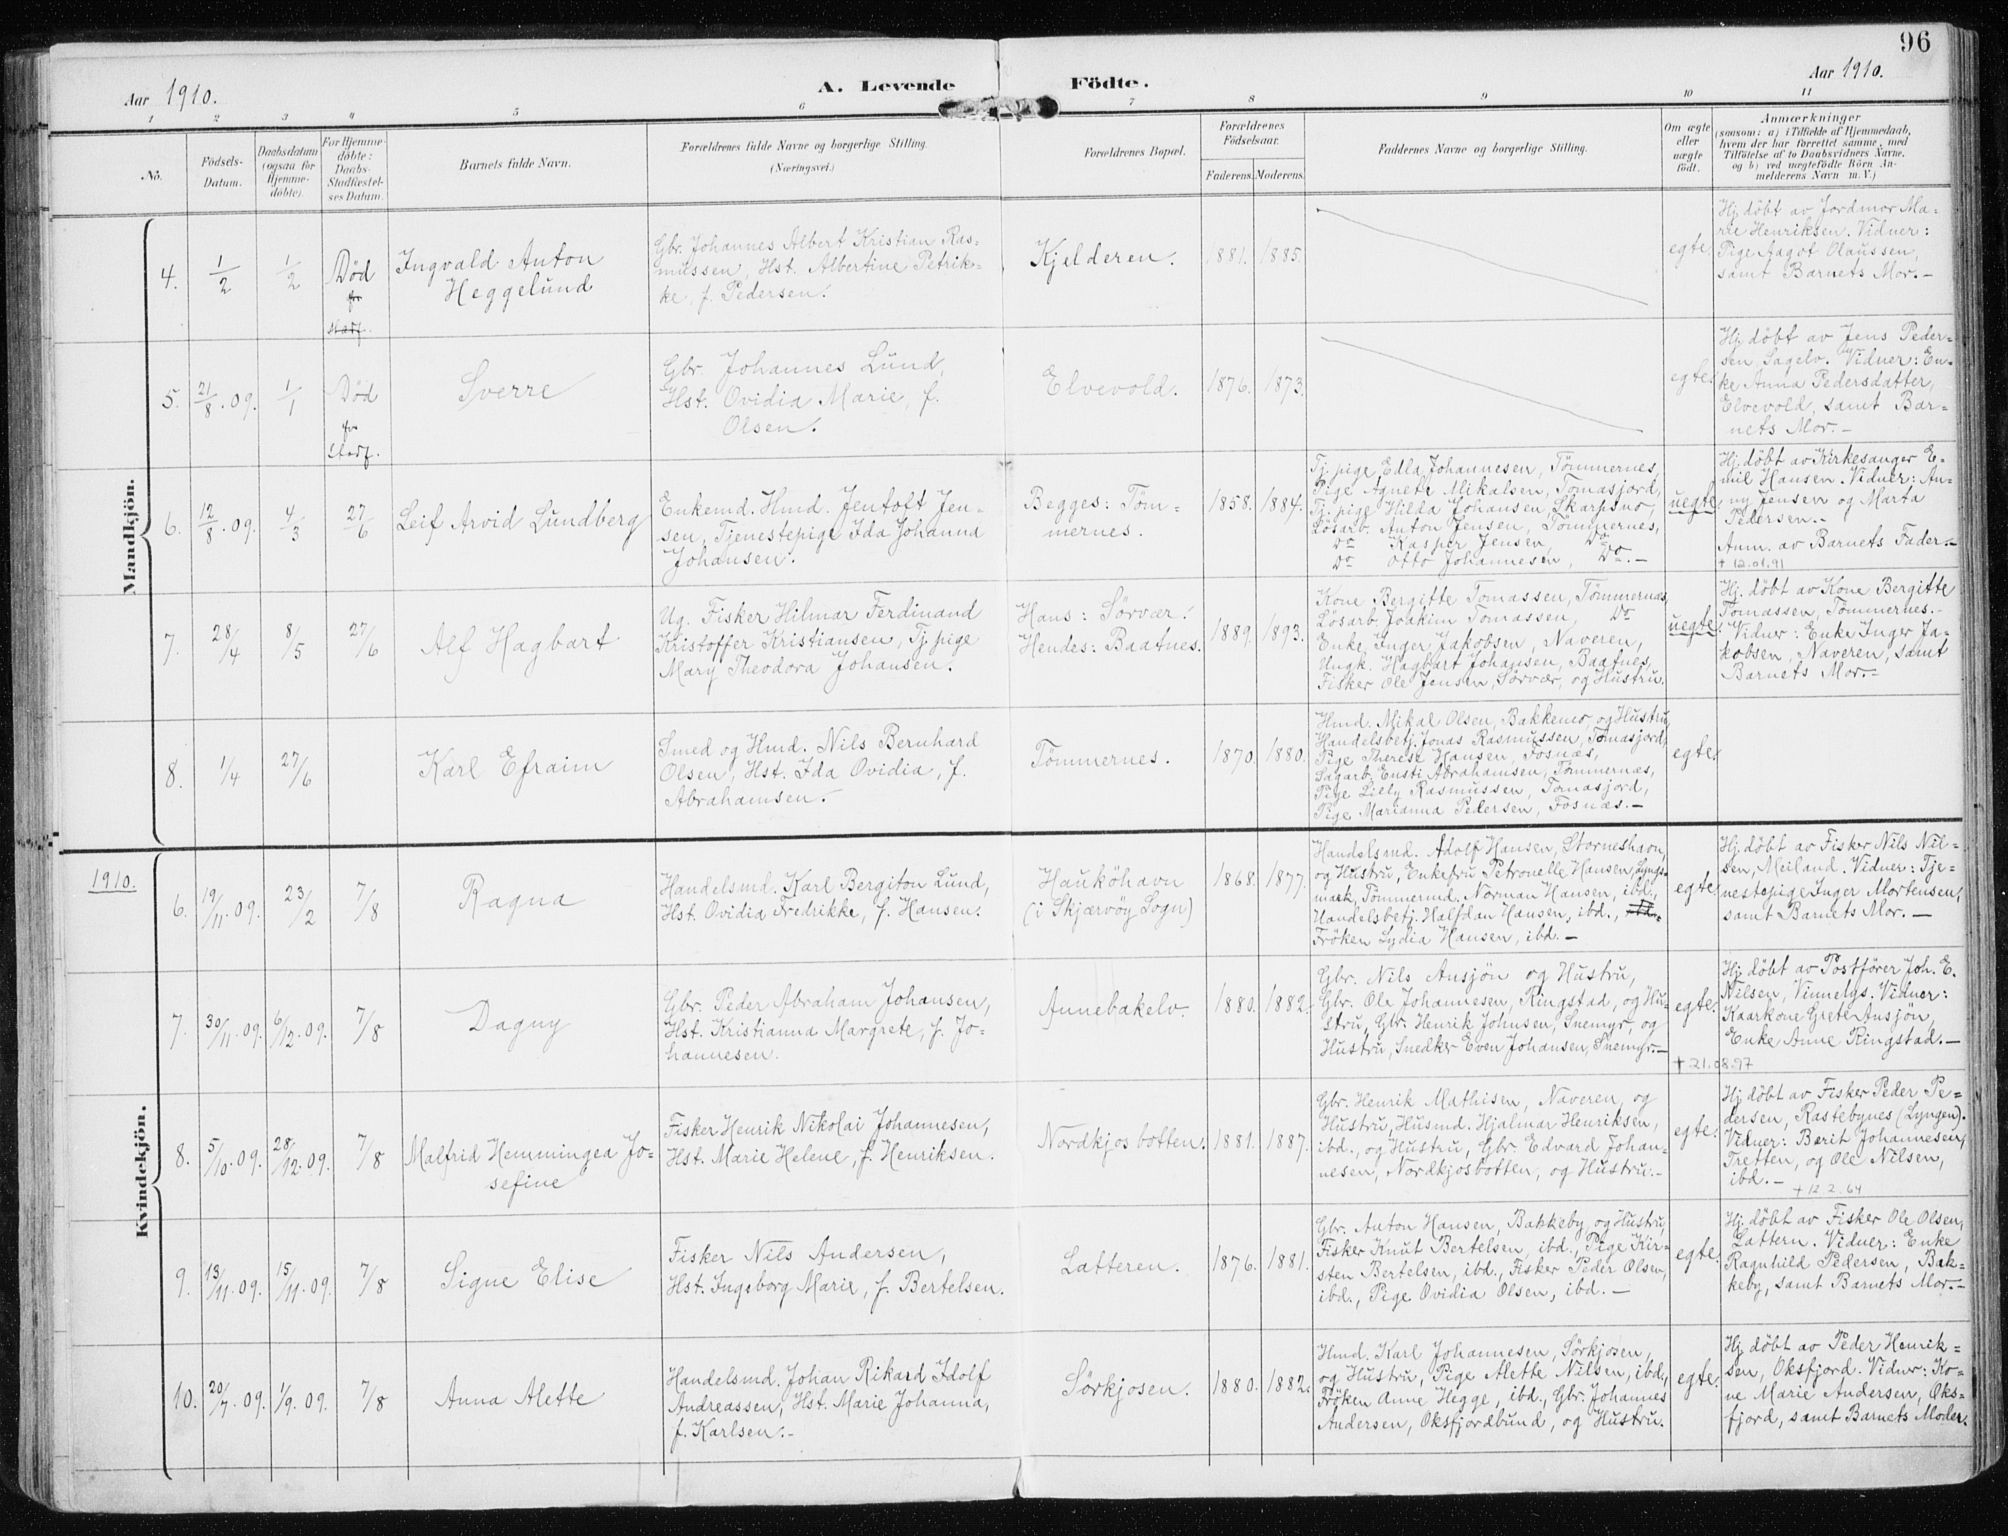 96
Aar 1910.
A. Levende Födte.
Aar 1910.
1 2 3 4 5 6 7 8 9 10 11
No.
Födsels-
Datum.
Daabsdatum
(ogsaa for
Hjemme-
döbte).
For Hjemme-
döbte:
Daabs-
Stadfæstel-
ses Datum.
Barnets fulde Navn.
Forældrenes fulde Navne og borgerlige Stilling.
(Næringsvei.)
Forældrenes Bopæl.
Forældrenes
Födselsaar.
Faderens. Moderens.
Faddernes Navne og borgerlige Stilling.
Om ægte
eller
uægte
födt.
Anmærkninger
(saasom: a) i Tilfælde af Hjemmedaab,
hvem der har forrettet samme, med
Tilföielse af to Daabsvidners Navne,
og b) ved uægtefödte Börn An-
melderens Navn m. V.)
Mandkjön.
4.
1/2
1/2
Död
før
stadf.
Ingvald Anton
Heggelund
Gbr. Johannes Albert Kristian Ras-
mussen, Hst. Albertine Petrik-
ke, f. Pedersen.
Kjelderen.
1881. 1885.
egte.
Hj. döbt av Jordmor Ma-
rie Henriksen. Vidner:
Pige Aagot Olaussen,
samt Barnets Mor.-
5.
21/8.09.
1/1
Död
før
stadf.
Sverre
Gbr. Johannes Lund,
Hst. Ovidia Marie, f.
Olsen.
Elvevold.
1876. 1873.
egte.
Hj. döbt av Jens Peder-
sen, Sagelv. Vidner: En-
ke Anna Pedersdatter,
Elvevold, samt Bar-
nets Mor.-
6.
12/8.09.
4/3
27/6
Leif Arvid Lundberg
Enkemd. Hmd. Jentoft Jen-
sen, Tjenestepige Ida Johanna
Johansen.
Begges: Töm-
mernes.
1858. 1884.
Tj.pige Edla Johannesen, Tömmernes,
Pige Agnete Mikalsen, Tomasjord,
Tj.pige Hilda Johansen, Skarpsno,
Lösarb. Anton Jensen, Tömmernes,
Do Kasper Jensen, Do
Do Otto Johannesen, Do.-
uegte.
Hj. döbt av Kirkesanger E-
mil Hansen. Vidner: An-
ny Jensen og Marta
Pedersen.-
Anm. av Barnets Fader.-
† 12.01.91
7.
28/4
8/5
27/6
Alf Hagbart
Ug. Fisker Hilmar Ferdinand
Kristoffer Kristiansen, Tj.pige
Mary Theodora Johansen.
Hans: Sörvær.
Hendes: Baatnes.
1889. 1893.
Kone Bergitte Tomassen, Tömmernes,
Lösarb. Joakim Tomassen, Do
Enke Inger Jakobsen, Naveren,
Ungk. Hagbart Johansen, Baatnes,
Fisker Ole Jensen, Sörvær, og Hustru.
uegte.
Hj. döbt av Kone Bergitte
Tomassen, Tömmernes.-
Vidner: Enke Inger Ja-
kobsen, Naveren, samt
Barnets Mor.-
8.
1/4
27/6
Karl Efraim
Smed og Hmd. Nils Bernhard
Olsen, Hst. Ida Ovidia, f.
Abrahamsen.-
Tömmernes.
1870. 1880.
Hmd. Mikal Olsen, Bakkemo, og Hustru,
Handelsbetj. Jonas Rasmussen, Tomasjord,
Pige Therese Hansen, Fosnæs,
Sagarb. Ensti Abrahamsen, Tömmernæs,
Pige Lilly Rasmussen, Tomasjord,
Pige Marianna Pedersen, Fosnæs.-
egte.
Kvindekjön.
1910.
6.
19/11.09.
23/2
7/8
Ragna
Handelsmd. Karl Bergiton Lund,
Hst. Ovidia Fredrikke, f. Hansen.
Hauköhavn
(i Skjærvöy Sogn)
1868. 1877.
Handelsmd. Adolf Hansen, Storneshavn,
og Hustru, Enkefru Petronelle Hansen, Lyngs-
mark, Tömmermd. Norman Hansen, ibd.,
Handelsbetj. Halfdan Hansen, ibd.,
Fröken Lydia Hansen, ibd.-
egte.
Hj. döbt av Fisker Nils Nil-
sen, Meiland. Vidner: Tje-
nestepige Inger Mortensen,
samt Barnets Mor.-
7.
30/11.09.
6/12.09.
7/8
Dagny
Gbr. Peder Abraham Johansen,
Hst. Kristianna Margrete, f. Jo-
hannesen.
Annebakelv.
1880. 1882.
Gbr. Nils Ansjön og Hustru,
Gbr. Ole Johannesen, Ringstad, og Hu-
stru, Gbr. Henrik Johnsen, Snemyr, og
Hustru, Snedker Even Johansen, Snemyr.-
egte.
Hj. döbt av Postförer Joh. E.
Nilsen, Vinnelys. Vidner:
Kaarkone Grete Ansjön,
Enke Anne Ringstad.-
† 21.08.97
8.
5/10.09.
28/12.09.
7/8
Malfrid Hemmingea Jo-
sefine
Fisker Henrik Nikolai Johannesen,
Hst. Marie Helene, f. Henriksen.
Nordkjosbotten.
1881. 1887.
Gbr. Henrik Mathisen, Naveren, og
Hustru, Husmd. Hjalmar Henriksen,
ibd., og Hustru, Gbr. Edvard Johan-
nesen, Nordkjosbotten, og Hustru.-
egte.
Hj. döbt av Fisker Peder Pe-
dersen, Rastebynes (Lyngen).
Vidner: Berit Johannesen,
Tretten, og Ole Nilsen,
ibd.-
† 12.2.64
9.
13/11.09.
15/11.09.
7/8
Signe Elise
Fisker Nils Andersen,
Hst. Ingeborg Marie, f. Bertelsen.
Latteren.
1876. 1881.
Gbr. Anton Hansen, Bakkeby, og Hustru,
Fisker Knut Bertelsen, ibd., Pige Kir-
sten Bertelsen, ibd., Fisker Peder Olsen,
ibd., Pige Ovidia Olsen, ibd.-
egte.
Hj. döbt av Fisker Ole Olsen,
Lattern. Vidner: Enke
Ragnhild Pedersen, Bak-
keby, samt Barnets Mor.-
10.
20/7.09.
1/9.09.
7/8
Anna Alette
Handelsmd. Johan Rikard Idolf
Andreassen, Hst. Marie Johanna,
f. Karlsen.-
Sörkjosen.
1880. 1882.
Hmd. Karl Johannesen, Sörkjosen,
og Hustru, Pige Alette Nilsen, ibd.,
Fröken Anne Hegge, ibd., Gbr. Johannes
Andersen, Oksfjordbund, og Hustru.
egte.
Hj. döbt av Peder Henrik-
sen, Oksfjord. Vidner: Ko-
ne Marie Andersen, Oks-
fjord, samt Barnets Moder.